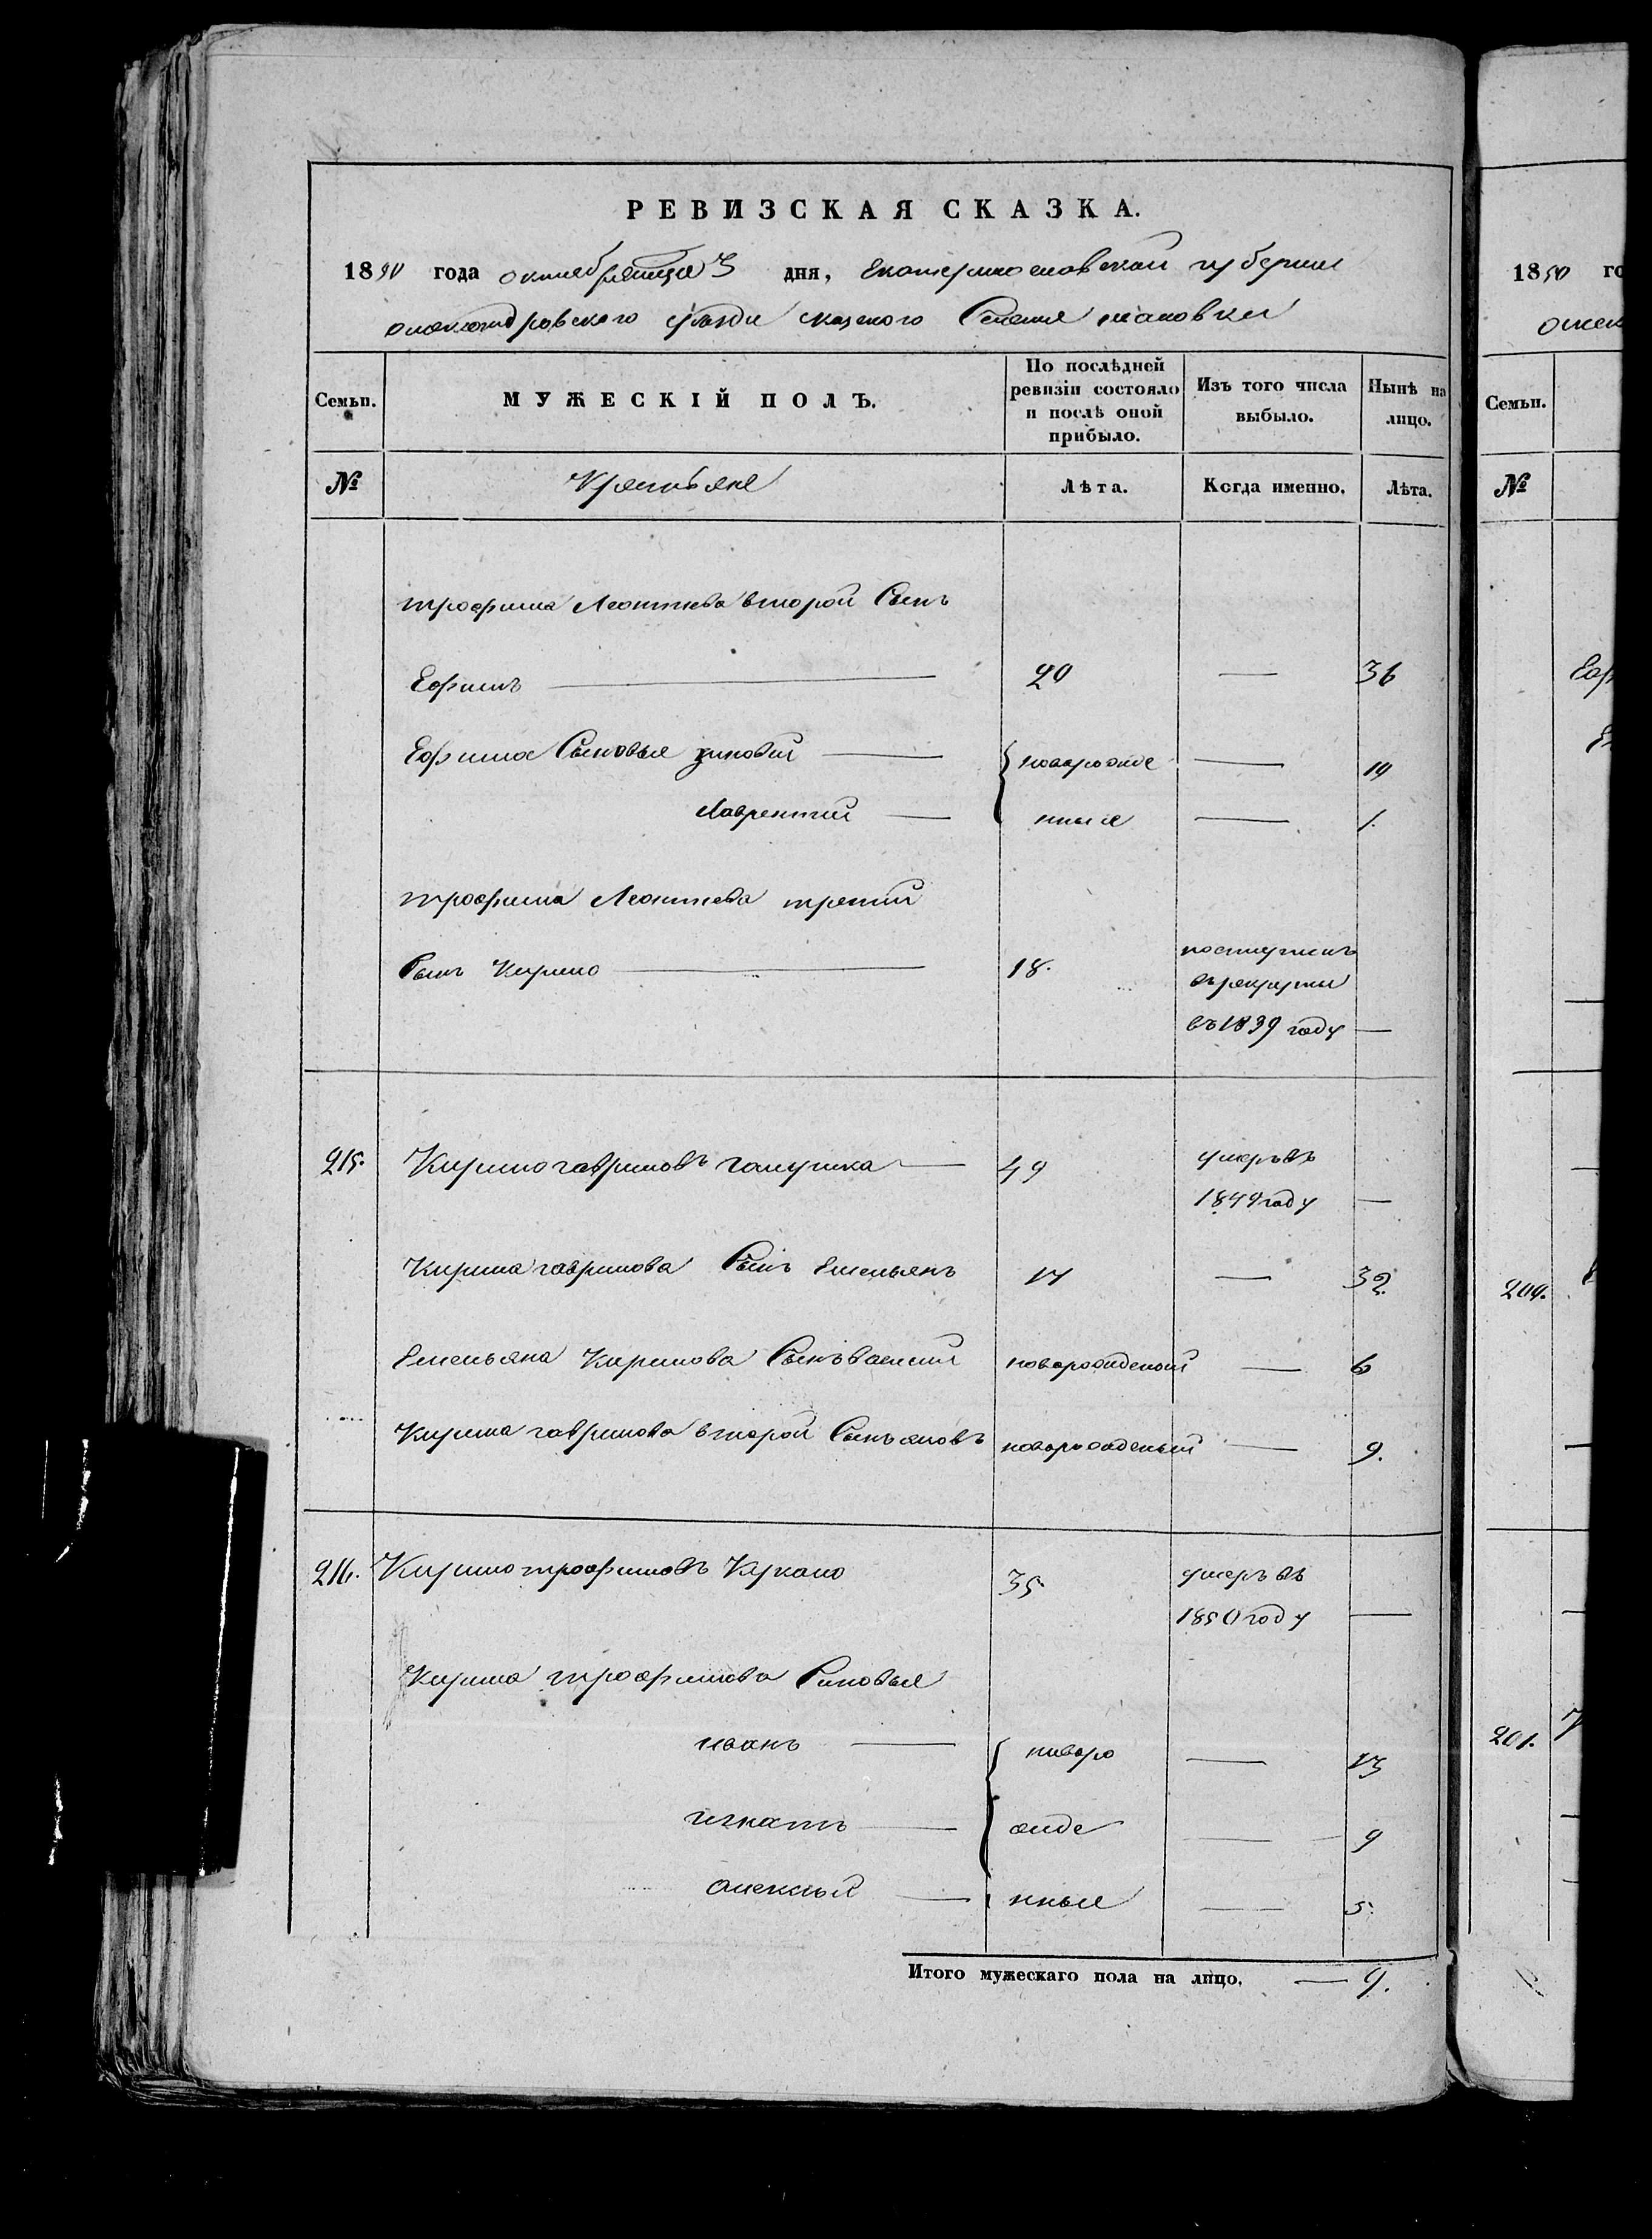 РЕВИЗСКАЯ СКАЗКА.
1850 года октября месяца 3 дня, Екатеринославской губернии
александровскаго уезда казеного Селения
Семьи. МУЖЕСКІЙ ПОЛЪ. По послѣдней ревизіи состояло и послѣ оной прибыло. Изъ того числа выбыло. Нынѣ на лицо.
№ Крестьяне Лѣта. Когда именно. Лѣта.
трофима Леонтева второй Сынъ
Ефимъ — 20 — 36
Ефима Сыновья зиновий — новорожде — 10
лаврентий — нные — 1.
трофима Леонтева третий
Сынъ Кирило — 18. поступилъ
въ рекруты
въ 1839 году —
215. Кирило гавриловъ галушка — 49 умеръ въ
1849 году —
Кирила гаврилова Сынъ Емельянъ 17 — 32.
Емельяна Кирилова Сынъ василий новорожденой — 6
Кирила гаврилова второй Сынъ яковъ новорожденый — 9.
216. Кирило трофимовъ 35 умеръ въ
1850 году —
Кирила трофимова Синовья
иванъ — новоро — 13
игнатъ — жде — 9
алексый — нные — 5.
Итого мужескаго пола на лицо. — 9.
1850 го
Семьи.
№
200.
201.